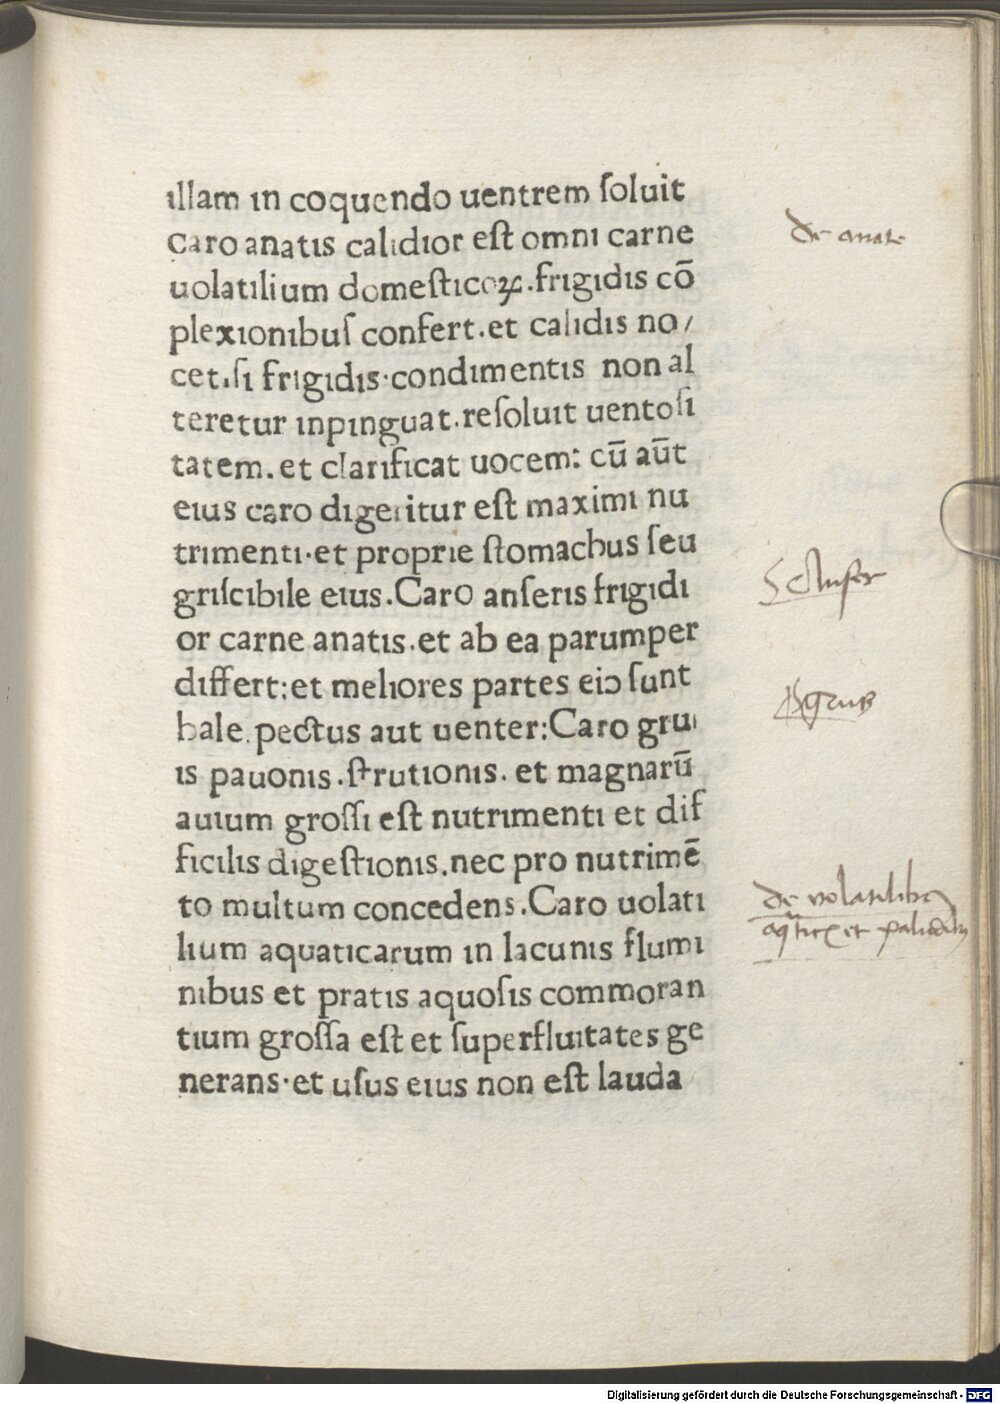 illam in coquendo uentrem ſoluit
Caro anatis calidior eſt omni carne
de anate
uolatilium domeſticoꝝ.frigidis cō
plexionibuſ confert.et calidis no/
cet.ſi frigidis·condimentis non al
teretur inpinguat.reſoluit uentoſi
tatem.et clarificat uocem: cū aūt
eius caro digeritur eſt maximi nu
trimenti·et proprie ſtomachus ſeu
griſcibile eius.Caro anſeris frigidi
Anſer
or carne anatis.et ab ea parumper
differt:et meliores partes eiꝰ ſunt
hale.pectus aut uenter:Caro gru
grus
is pauonis.ſtrutionis. et magnarū
auium groſſi eſt nutrimenti et dif
ficilis digeſtionis.nec pro nutrimē
to multum concedens.Caro uolati
de volatilibꝰ
lium aquaticarum in lacunis flumi
et
nibus et pratis aquoſis commoran
tium groſſa eſt et ſuperfluitates ge
nerans·et uſus eius non eſt lauda
Digitalisierung gefördert durch die Deutsche Forschungsgemeinschaft - DFG